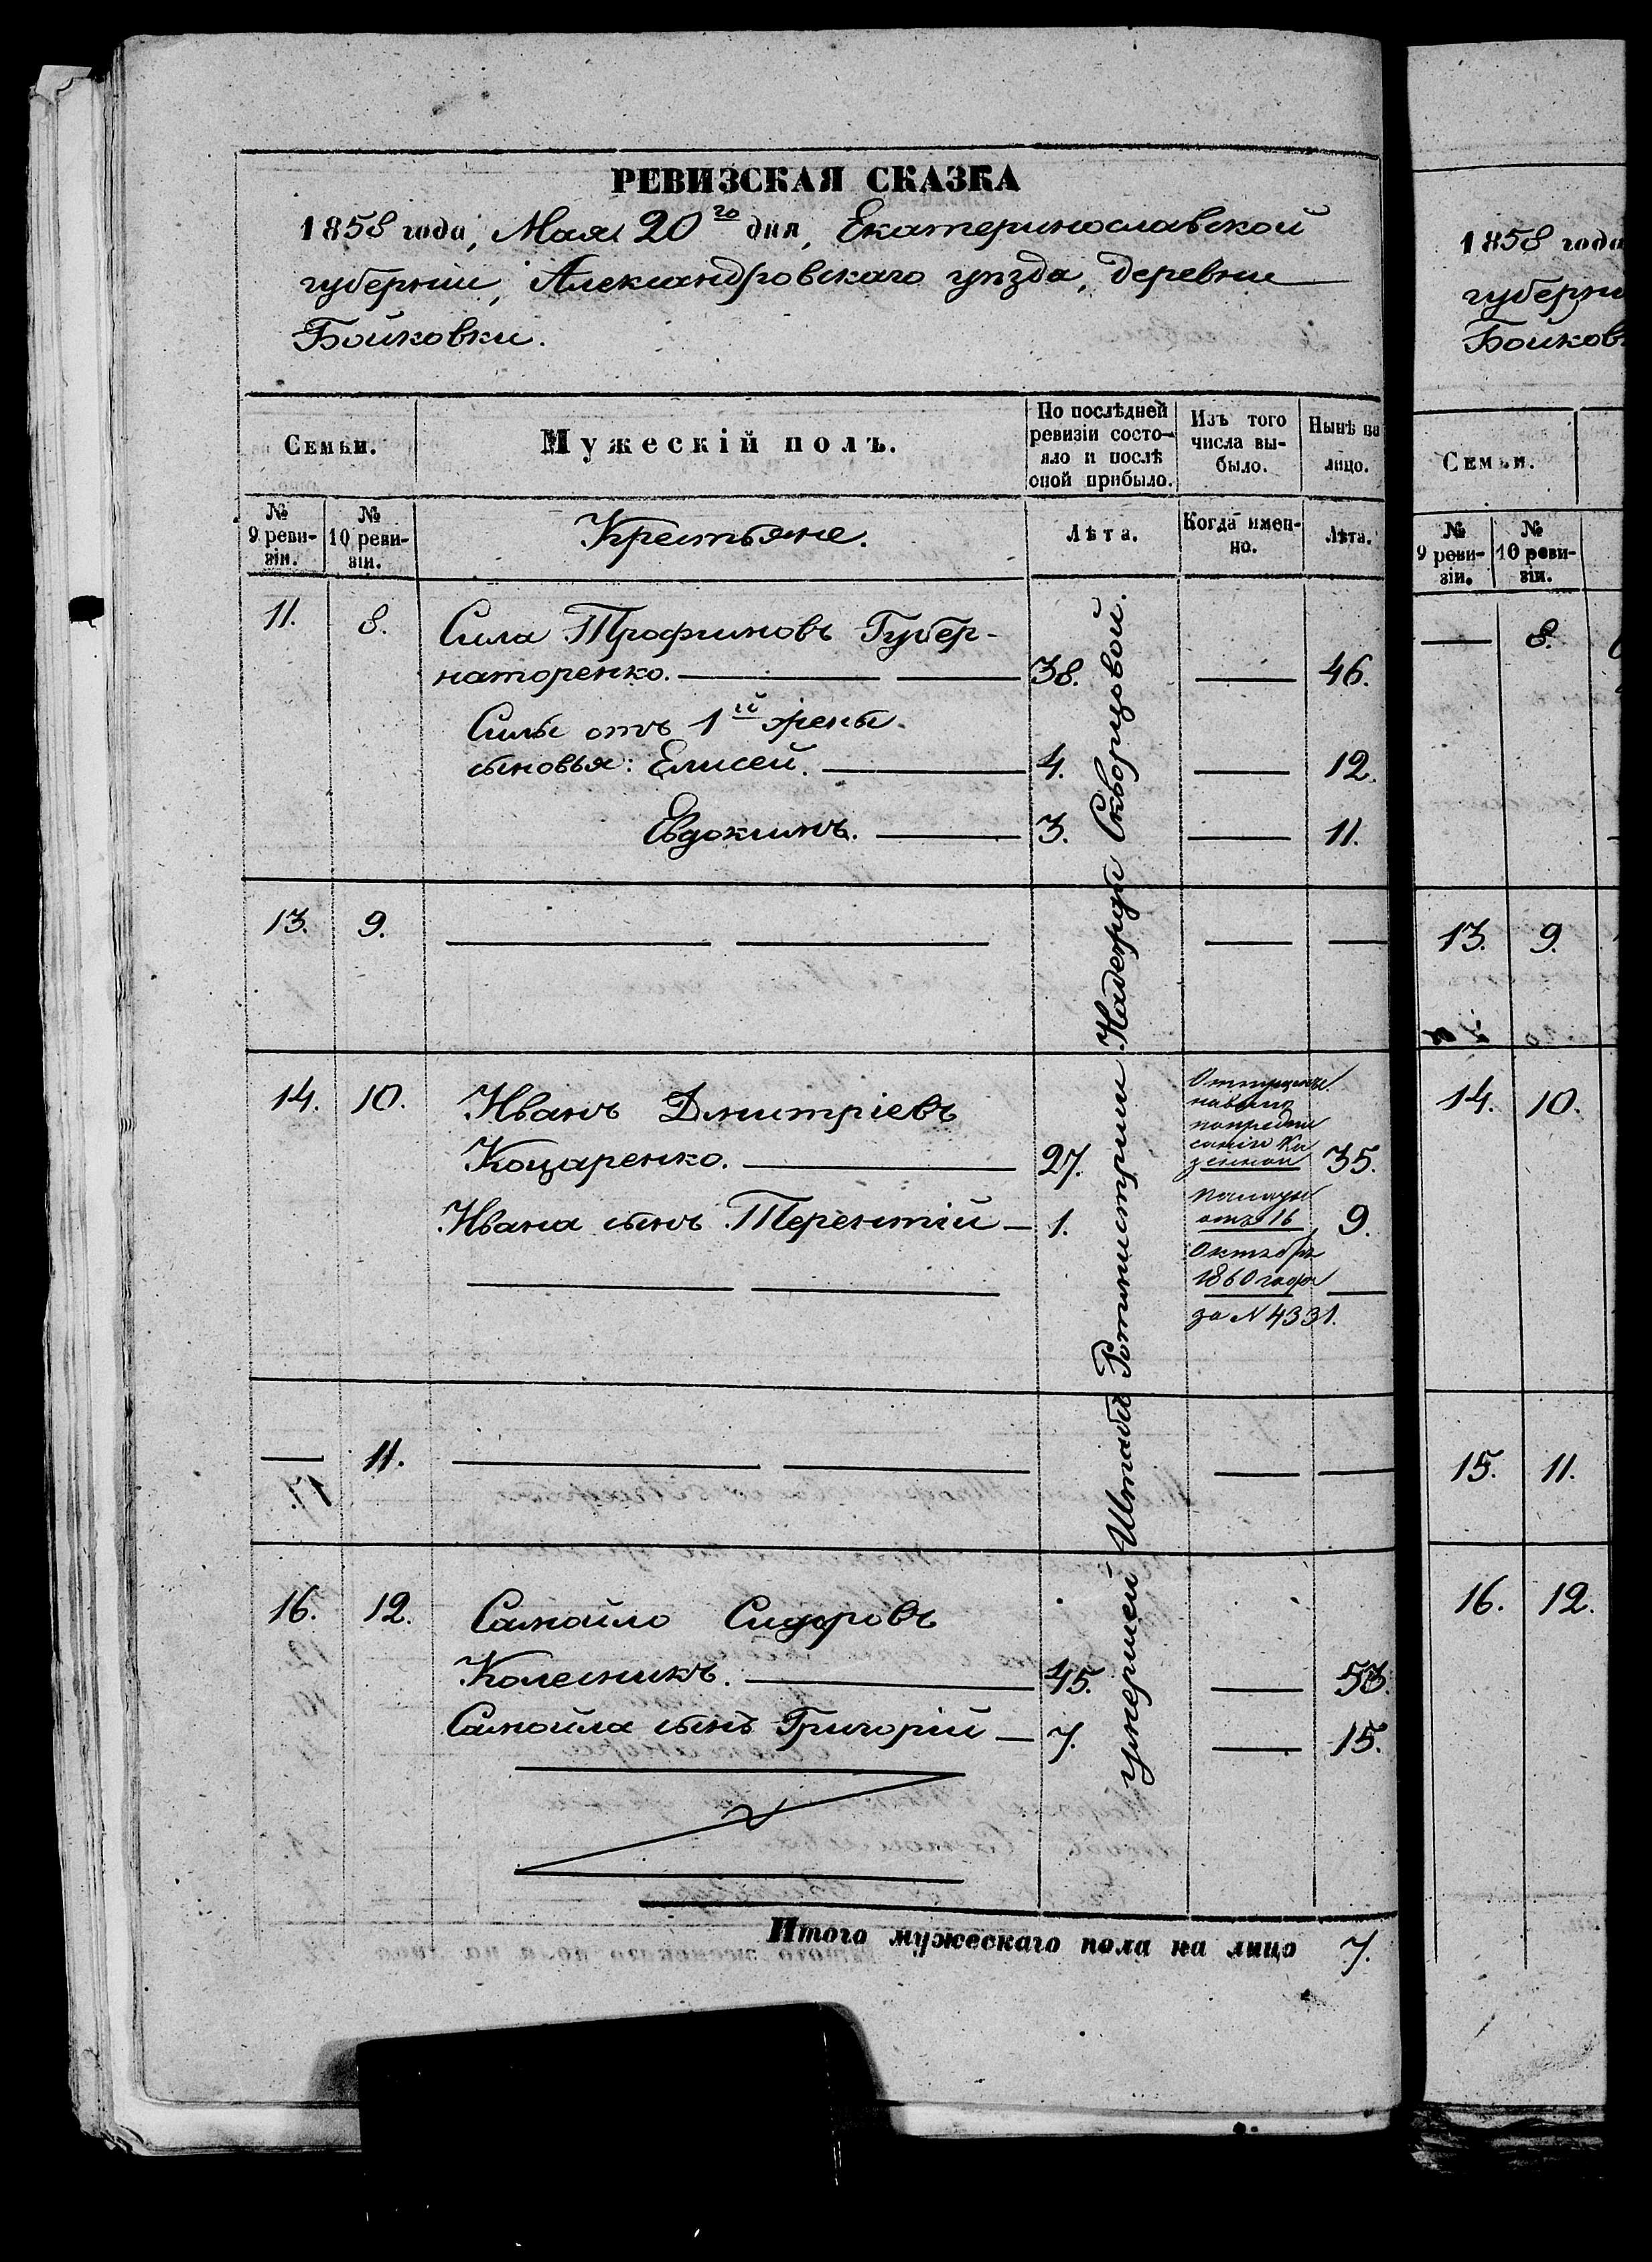 РЕВИЗСКАЯ СКАЗКА
1858 года, Мая 20го дня, Екатеринославской
губерніи, Александровскаго уѣзда, деревни
Бойковки.
Семьи. Мужескій полъ. По послѣдней ревизіи состояло и послѣ оной прибыло. Изъ того числа выбыло. Нынѣ на лицо.
№ 9 ревизіи. № 10 ревизіи. Крестьяне. Лѣта. Когда именно. Лѣта.
11. 8. Сила Трофимовъ Губер-
наторенко. 38. — 46.
Силы отъ 1й жены
сыновья: Елисей. 4. — 12.
Евдокимъ. 3. — 11.
13. 9. — — — —
14. 10. Иванъ Дмитріевъ
Коцаренко. 27. 35.
Ивана сынъ Терентій — 1. 9.
Отпущены
на волю
по предпи
санію Ка
зенной
палаты
отъ 16
Октября
1860 года
за N 4331.
— 11. — — — —
16. 12. Самойло Сидоровъ
Колесникъ. 45. — 53.
Самойла сынъ Григорій — 7. — 15.
умершей Штабъ Ротмистрши Надежды Скворцовой.
Итого мужескаго пола на лицо 7.
1858 года
губерни
Бойков
Семьи.
№ 9 ревизіи. № 10 ревизіи.
— 8.
13. 9.
14. 10.
15. 11.
16. 12.